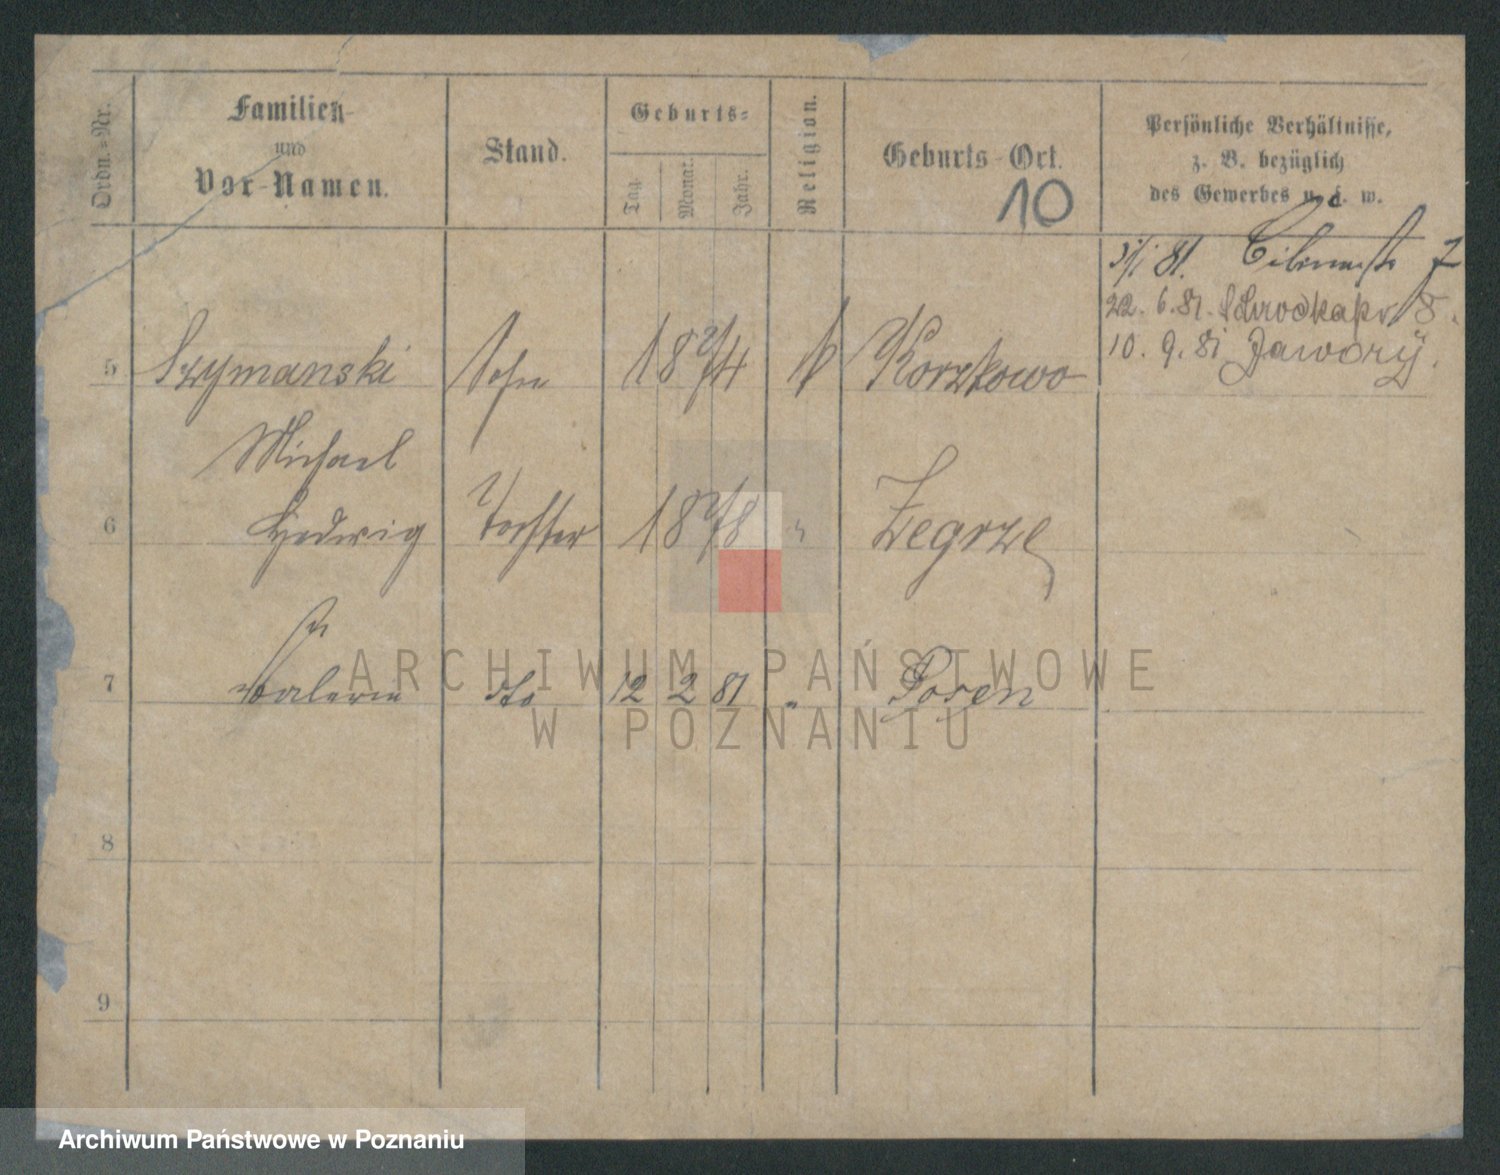 Ordn.-Nr.
Familien-
und
Vor-Namen.
Stand.
Geburts-
Tag.
Monat.
Jahr.
Religion.
Geburts-Ort.
10
Persönliche Verhältnisse,
z. B. bezüglich
des Gewerbes u. s. w.
81. 7
22. 6. 81. 5.
10. 9. 81 Jawory.
5 Szymanski Sohn 18 7/4 k Korzkowo
Michael
6 Hedwig Tochter 18 7/8 " Zegrze
7 Valerie dto 12 2 81 " Posen
8
9
ARCHIWUM PAŃSTWOWE
W POZNANIU
Archiwum Państwowe w Poznaniu